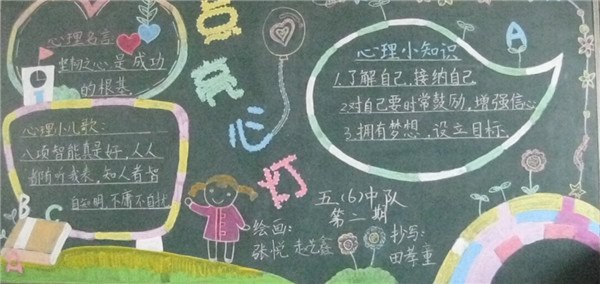 心理名言
坚韧之心是成功
的根基
心理小儿歌:
八项智能真是好,人人
都有听我来,知人者智
自知明,不庸不自扰
点亮心灯
心理小知识
1.了解自己,接纳自己
2.对自己要时常鼓励,增强信心
3.拥有梦想,设立目标
A
B C
五(6)中队
第二期
绘画:
张悦
抄写:
田孝童